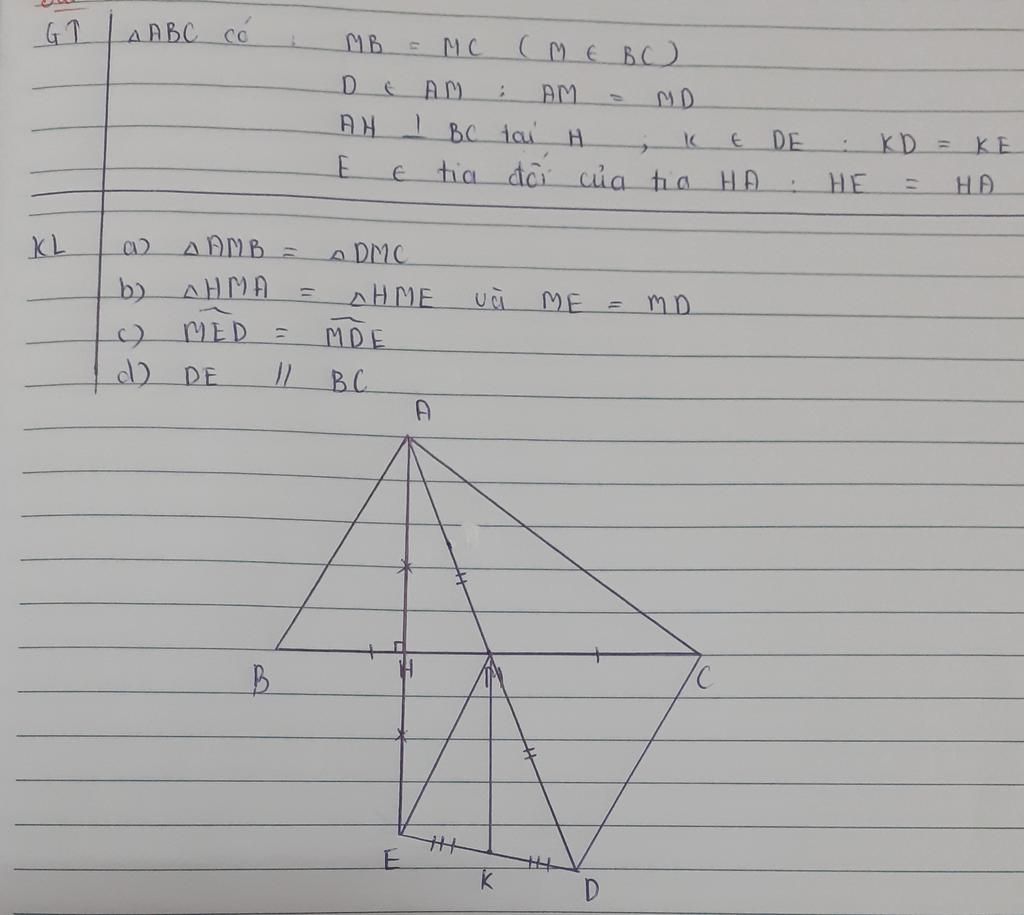 GT ΔABC có : MB = MC ( M ∈ BC )
D ∈ AM : AM = MD
AH ⊥ BC tại H ; K ∈ DE : KD = KE
E ∈ tia đối của tia HA : HE = HA
KL a) ΔAMB = ΔDMC
b) ΔHMA = ΔHME và ME = MD
c) \widehat{MED} = \widehat{MDE}
d) DE // BC
A
B H M C
E K D